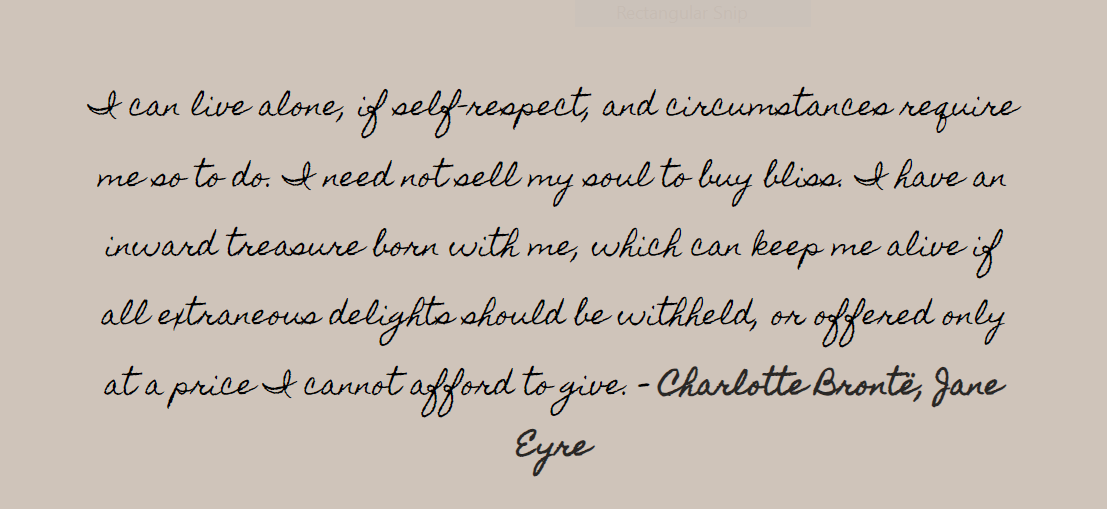 Rectangular Snip
I can live alone, if self-respect, and circumstances require
me so to do. I need not sell my soul to buy bliss. I have an
inward treasure born with me, which can keep me alive if
all extraneous delights should be withheld, or offered only
at a price I cannot afford to give. - Charlotte Brontë, Jane
Eyre